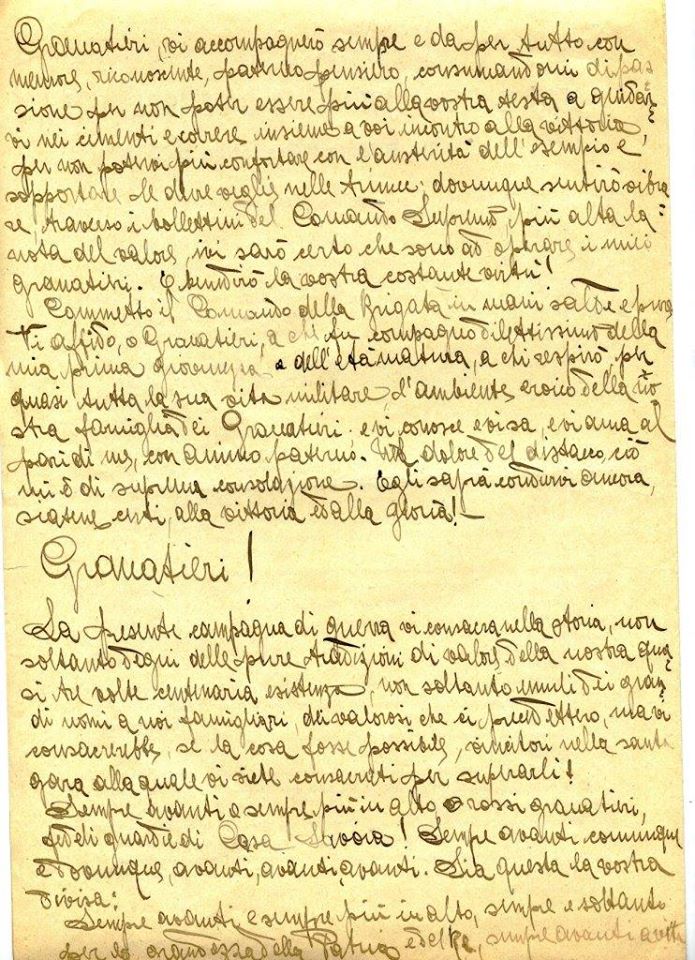 Granatieri, vi accompagnerò sempre e da per tutto con
memore, riconoscente, paterno pensiero, consumandomi di pas
sione per non poter essere più alla vostra testa a guidar
vi nei cimenti e correre insieme a voi incontro alla vittoria,
per non potervi più confortare con l'austerità dell'esempio e
sopportare le dure veglie nelle trincee; dovunque sentirò vibra
re, traverso i bollettini del Comando Supremo, più alta la
nota del valore, ivi sarò certo che sono ad operare i miei
granatieri. E benedirò la vostra costante virtù!
Commetto il Comando della Brigata in mani salde e pure
Vi affido, o Granatieri, a chi fu compagno dilettissimo della
mia prima giovinezza e dell'età matura, a chi respirò per
quasi tutta la sua vita militare, l'ambiente eroico della no
stra famiglia dei Granatieri: e vi conosce e vi sa, e vi ama al
pari di me, con animo paterno. Nel dolore del distacco, ciò
mi è di suprema consolazione. Egli saprà condurvi ancora,
siatene certi, alla vittoria ed alla gloria! -
Granatieri!
La presente campagna di guerra vi consacra nella storia, non
soltanto degni delle pure tradizioni di valore della nostra qua
si tre volte centenaria esistenza, non soltanto emuli dei gran
di nomi a noi famigliari, dei valorosi che ci precedettero, ma vi
consacrerebbe, se la cosa fosse possibile, vincitori nella santa
gara alla quale vi siete consacrati per superarli!
Sempre avanti e sempre più in alto o rossi granatieri,
fedeli guardie di Casa Savoia! Sempre avanti comunque
e dovunque, avanti, avanti, avanti. Sia questa la vostra
divisa:
Sempre avanti e sempre più in alto, sempre e soltanto
per la grandezza della Patria e del Re, sempre avanti